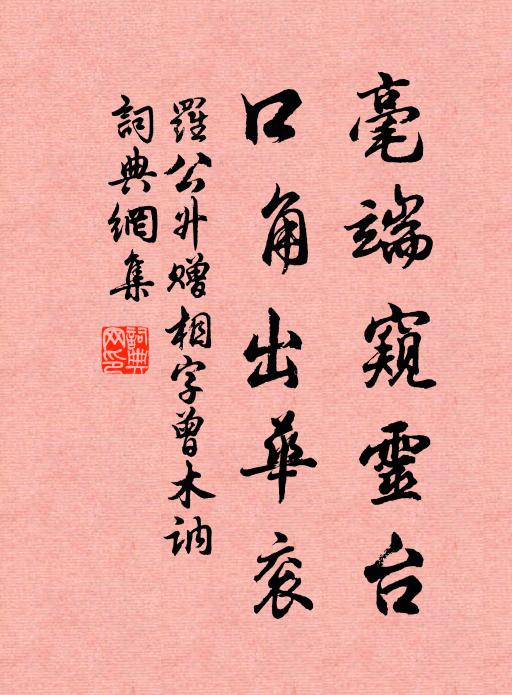 毫端窺靈台
口角出華衮
羅公升贈相字曾木訥
詞典網集
詞典網印